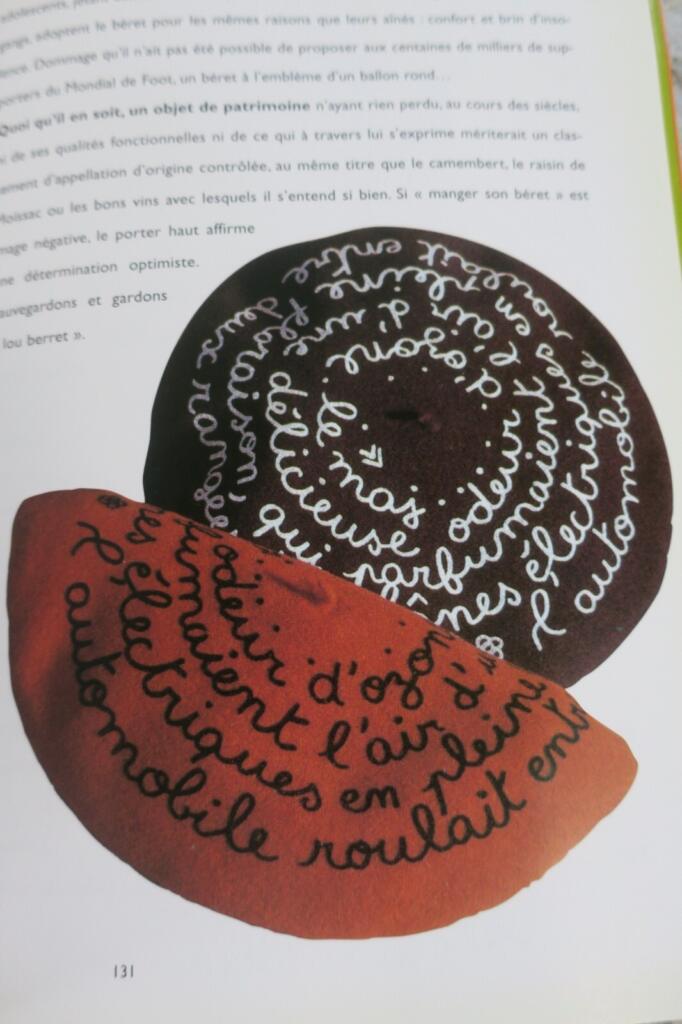 adoptent le béret pour les mêmes raisons que leurs aînés : confort et brin d'inso-
lence. Dommage qu'il n'ait pas été possible de proposer aux centaines de milliers de sup-
porters du Mondial de Foot, un béret à l'emblème d'un ballon rond...
Quoi qu'il en soit, un objet de patrimoine n'ayant rien perdu, au cours des siècles,
ni de ses qualités fonctionnelles ni de ce qui à travers lui s'exprime mériterait un clas-
sement d'appellation d'origine contrôlée, au même titre que le camembert, le raisin de
Moissac ou les bons vins avec lesquels il s'entend si bien. Si « manger son béret » est
négative, le porter haut affirme
ne détermination optimiste.
auvegardons et gardons
lou berret ».
l'automobile roulait entre
deux rangs
électriques en pleine
floraison
qui parfumaient l'air d'une
délicieuse odeur d'ozone
le mas
odeur d'ozon
umaient l'air d'u
res électriques en pleine
l'automobile roulait entr
131